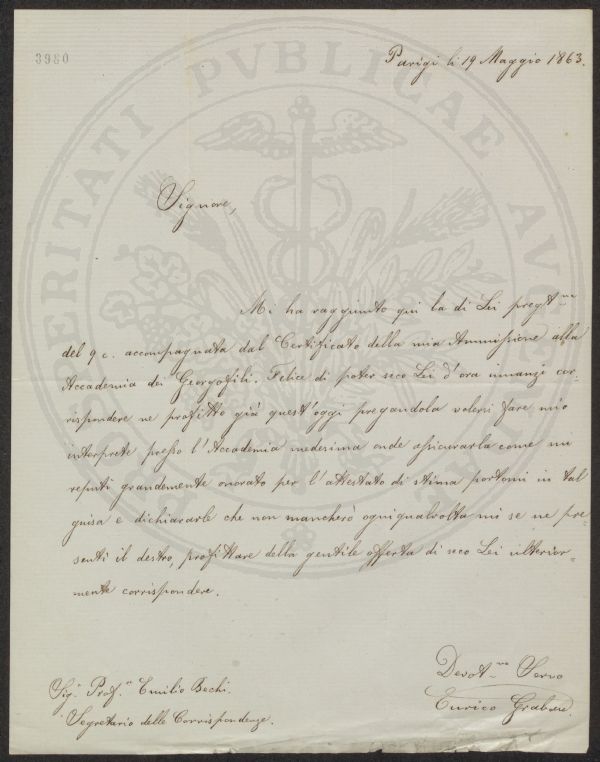 3980
Parigi li 19 Maggio 1863.
Signore,
Mi ha raggiunto qui la di Lei pregt.ma
del 9 c. accompagnata dal Certificato della mia Ammissione alla
Accademia dei Georgofili. Felice di poter seco Lei d'ora innanzi cor-
rispondere ne profitto già quest'oggi pregandola volersi fare mio
interprete presso l'Accademia medesima onde assicurarla come mi
reputi grandemente onorato per l'attestato di stima portomi in tal
guisa e dichiararle che non mancherò ogniqualvolta mi se ne pre-
senti il destro, profittare della gentile offerta di seco Lei ulterior-
mente corrispondere.
Devot.mo Servo
Enrico
Sig.r Prof.re Emilio Bechi.
Segretario delle Corrispondenze.
PVBLICAE